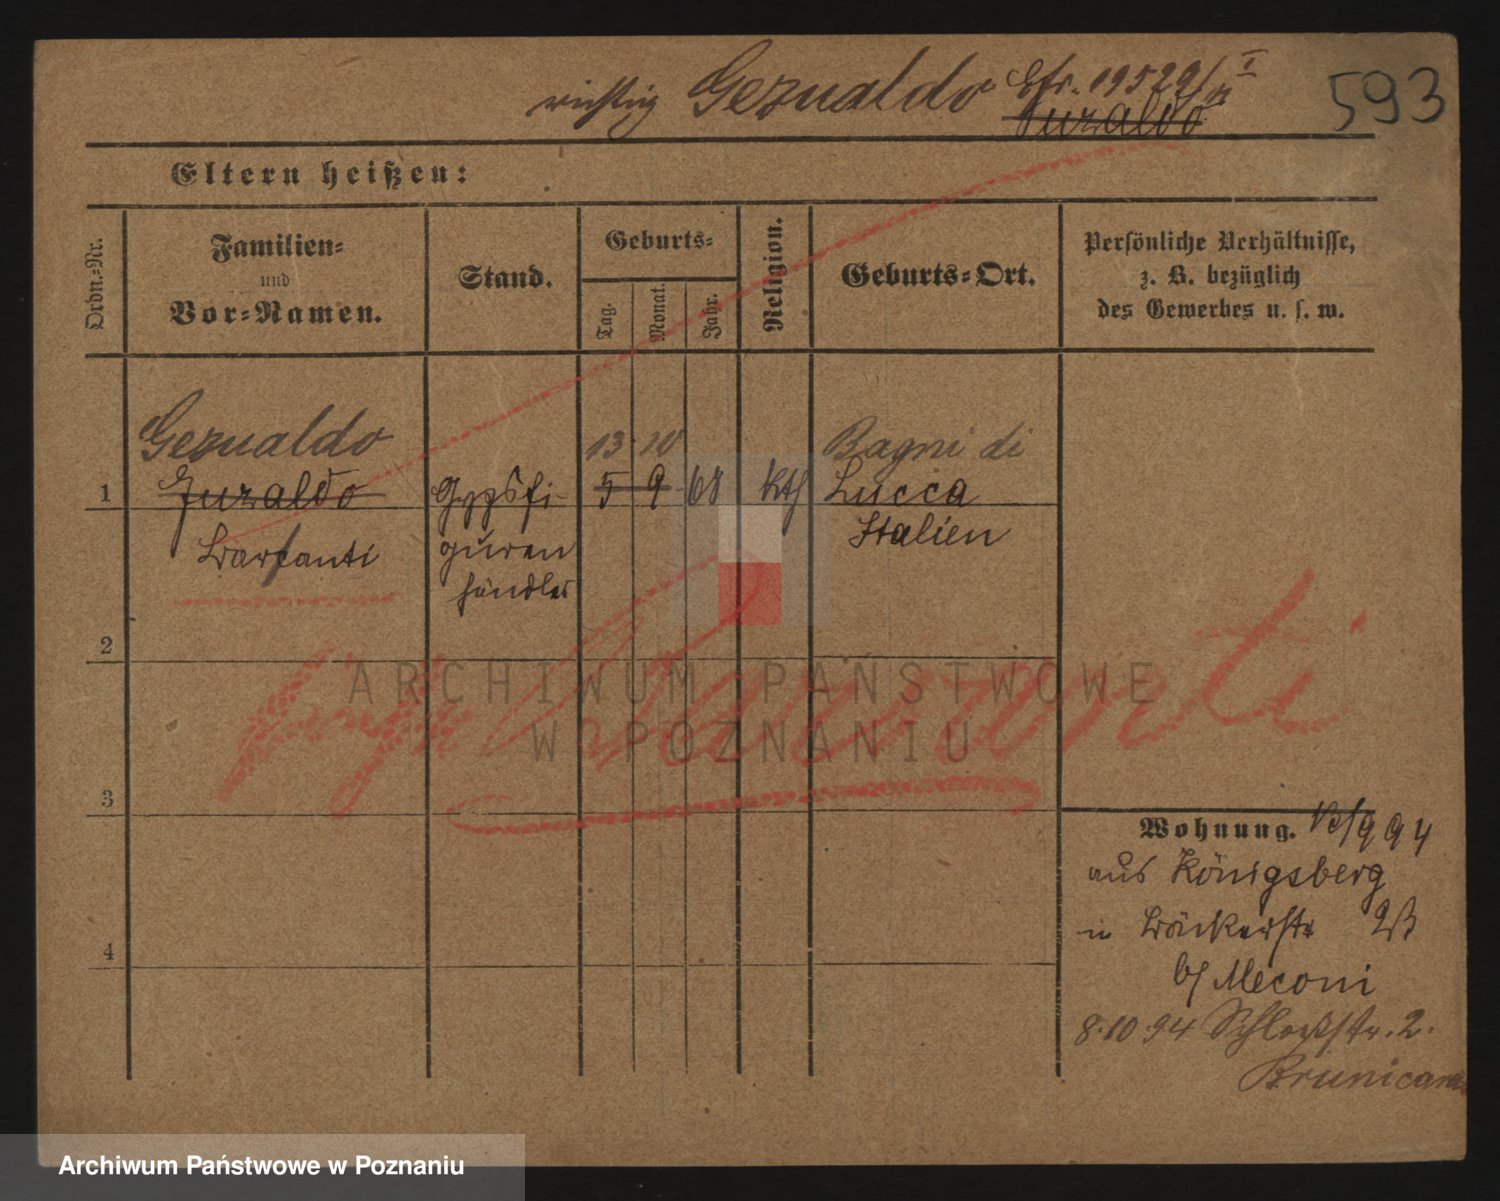 richtig Gezualdo Efr. 19529/a I
Juraldo
593
Eltern heißen:
Ordn.=Nr.
Familien=
und
Vor=Namen.
Stand.
Geburts=
Tag.
Monat.
Jahr.
Religion.
Geburts=Ort.
Persönliche Verhältnisse,
z. B. bezüglich
des Gewerbes u. s. w.
Gezualdo 13 10 Bagni di
1 Juraldo Gypsfi- 5 9 68 kth Lucca
guren Italien
händler
2
ARCHIWUM PAŃSTWOWE
W POZNANIU
3
Wohnung. 994
aus Königsberg
in Bäckerstr 23
b/ Meconi
4
8.10 94 Schloßstr. 2.
Brunicara
Archiwum Państwowe w Poznaniu